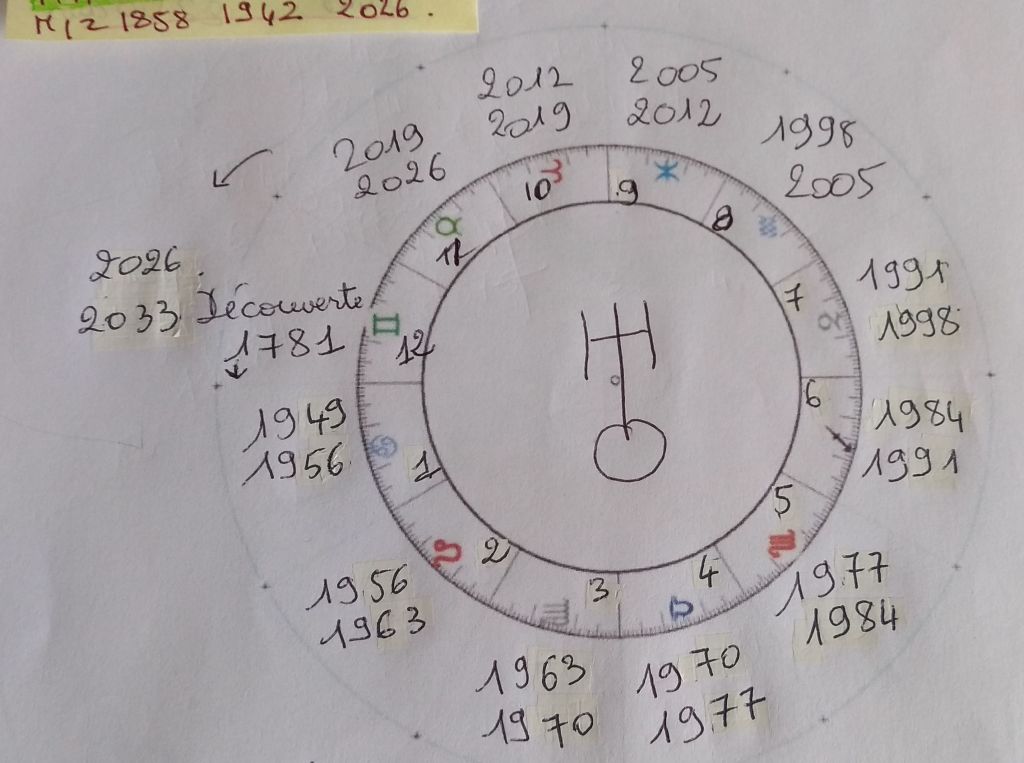 1858 1942 2026.
2012
2019
2005
2012
2019
2026
1998
2005
2026.
2033 Découverte
1781
1991
1998
1949
1956
1984
1991
1956
1963
1977
1984
1963
1970
1970
1977
♈
♓
♉
♒
♊
♑
♋
♐
♌
♏
♍
♎
10
9
11
8
12
7
1
6
2
5
3
4